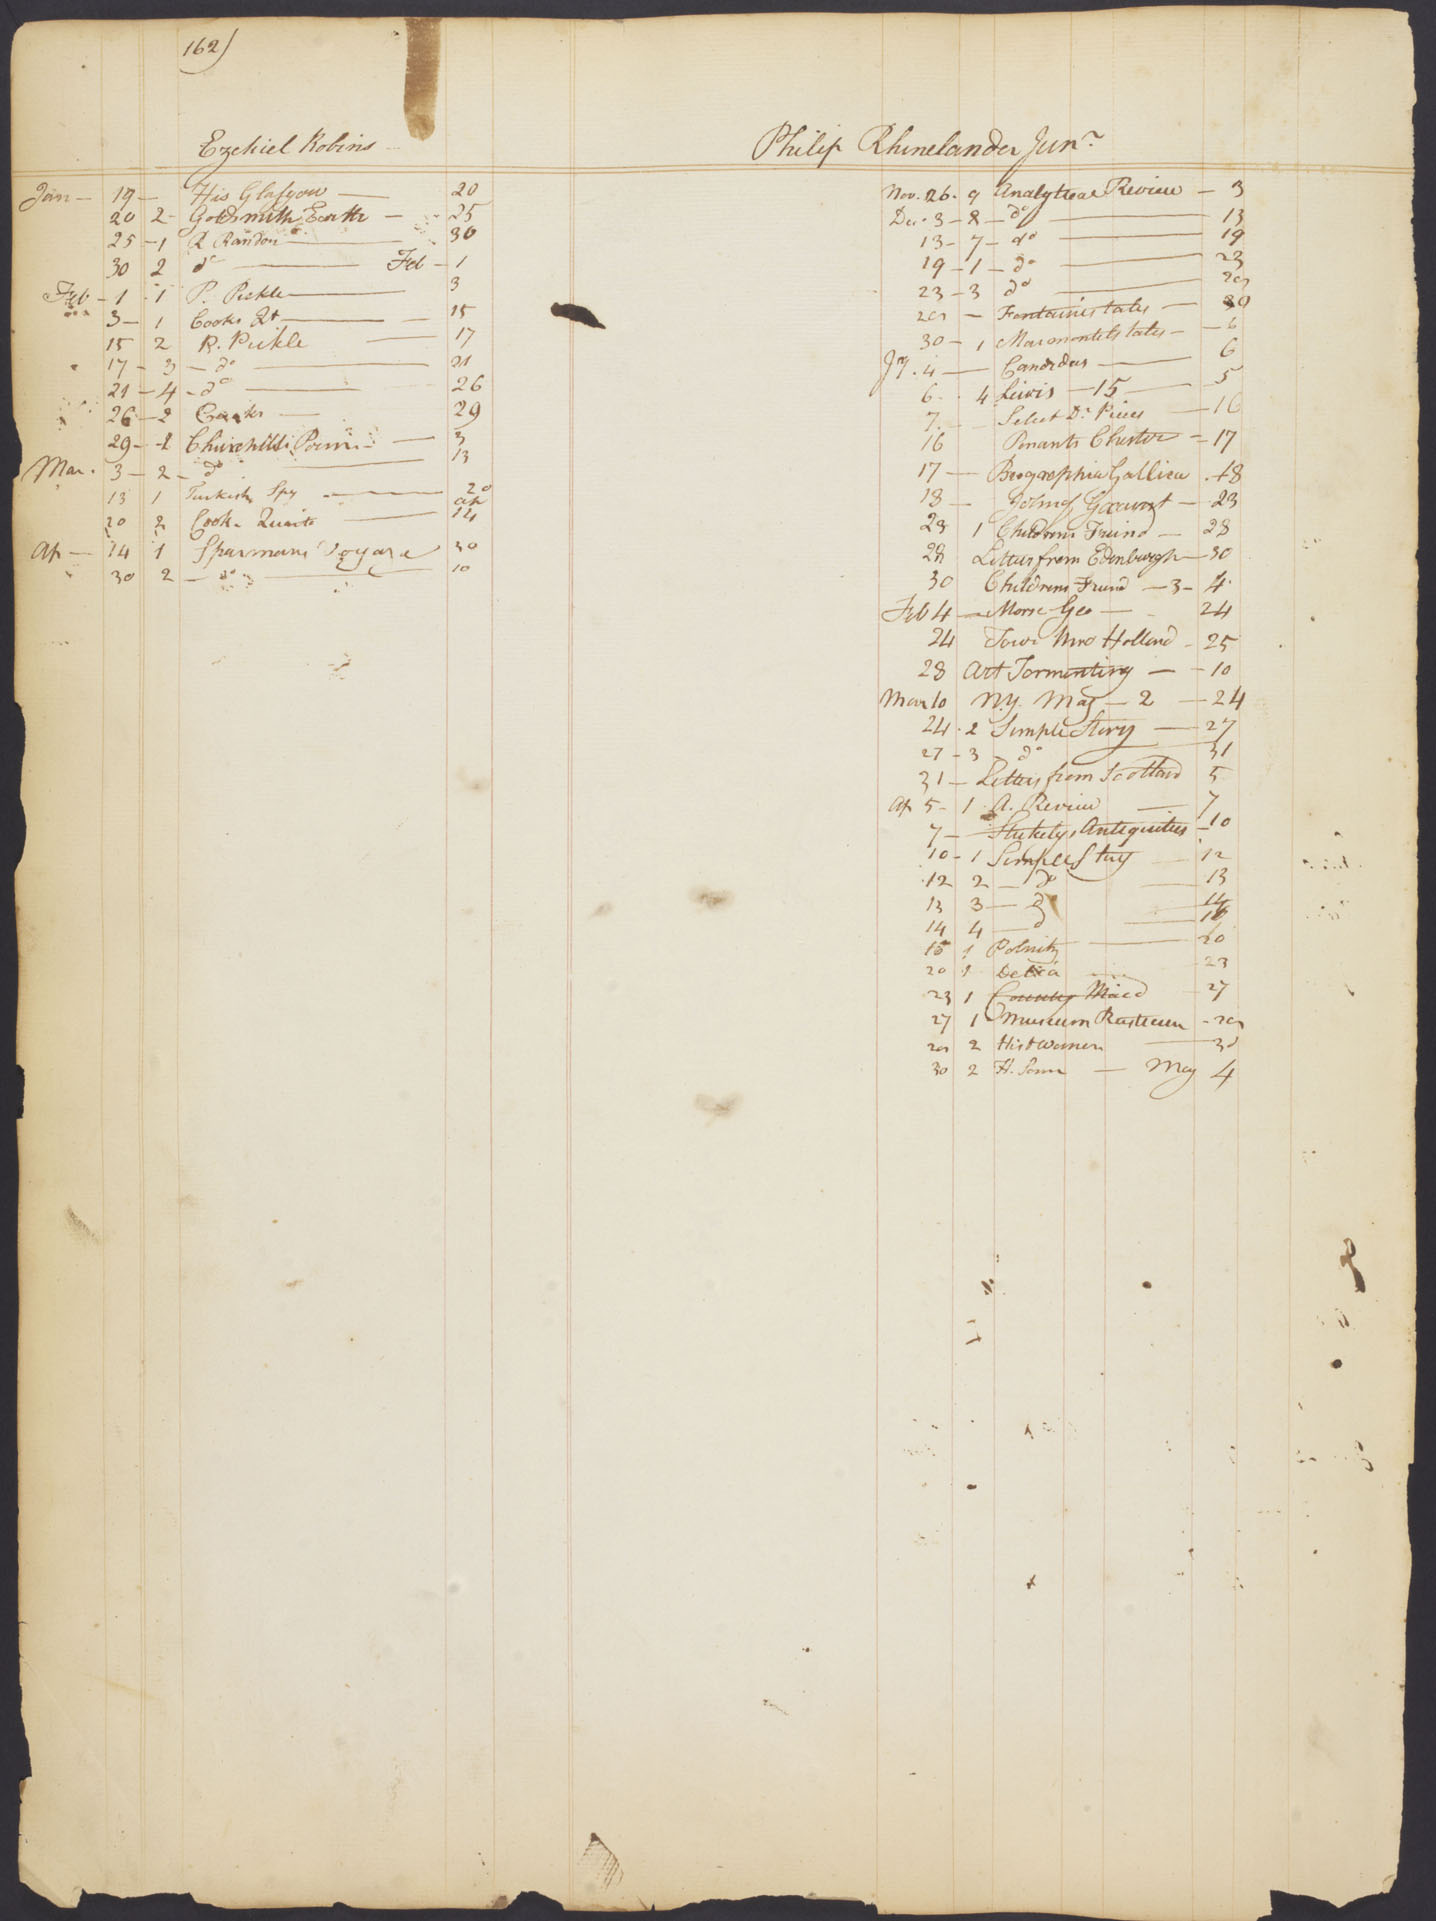 162)
Ezekiel Robins
Jan - 19 - His Glasgow - 20
20 2 - Goldsmith Earth - 25
25 - 1 R Randon - 30
30 2 do - Feb - 1
Feb - 1 - 1 P. Pickle - 3
3 - 1 Cooks - 15
15 2 P. Pickle - 17
17 - 3 - do - 21
21 - 4 - do - 26
26 - 2 Cooks - 29
29 - 1 Churchills Poems - 3
Mar. 3 - 2 - do - 13
13 1 Turkish Spy - 20
20 2 Cooke - ap 14
Ap - 14 1 Sparmans Voyage 30
30 2 - do - 10
Philip Rhinelander Junr
Nov. 26. 9 Analytical Review - 3
Dec. 3 - 8 - do - 13
13 - 7 - do - 19
19 - 1 - do - 23
23 - 3 do - 29
29 - Fontaines tales - 30
30 - 1 Marmontels tales - 6
Jy. 4 - Candidus - 6
6. 4 Lewis - 15 - 5
7. Select Dr. Pieces - 16
16 Penants Chester - 17
17 - Biographia Gallica . 18
18 - 23
23 1 Childrens Friend - 28
28 Letters from Edinburgh - 30
30 Childrens Friend - 3 - 4
Feb 4 - Morse Geo - 24
24 Tour thro Holland - 25
28 Art Tormenting - 10
Mar 10 N.Y. Mag - 2 - 24
24 . 2 Simple Story - 27
27 - 3 - do 31
31 - Letters from Scotland 5
Ap 5 - 1 A. Review - 7
7 - Stukelys Antiquities - 10
10 - 1 Simple Story - 12
12 2 - do - 13
13 3 - do 14
14 4 - do - 16
15 1 Polnitz - 20
20 1 Delia - 23
23 1 Country Maid - 27
27 1 Museum Rusticum - 29
29 2 Hist Women - 30
30 2 H. - May 4